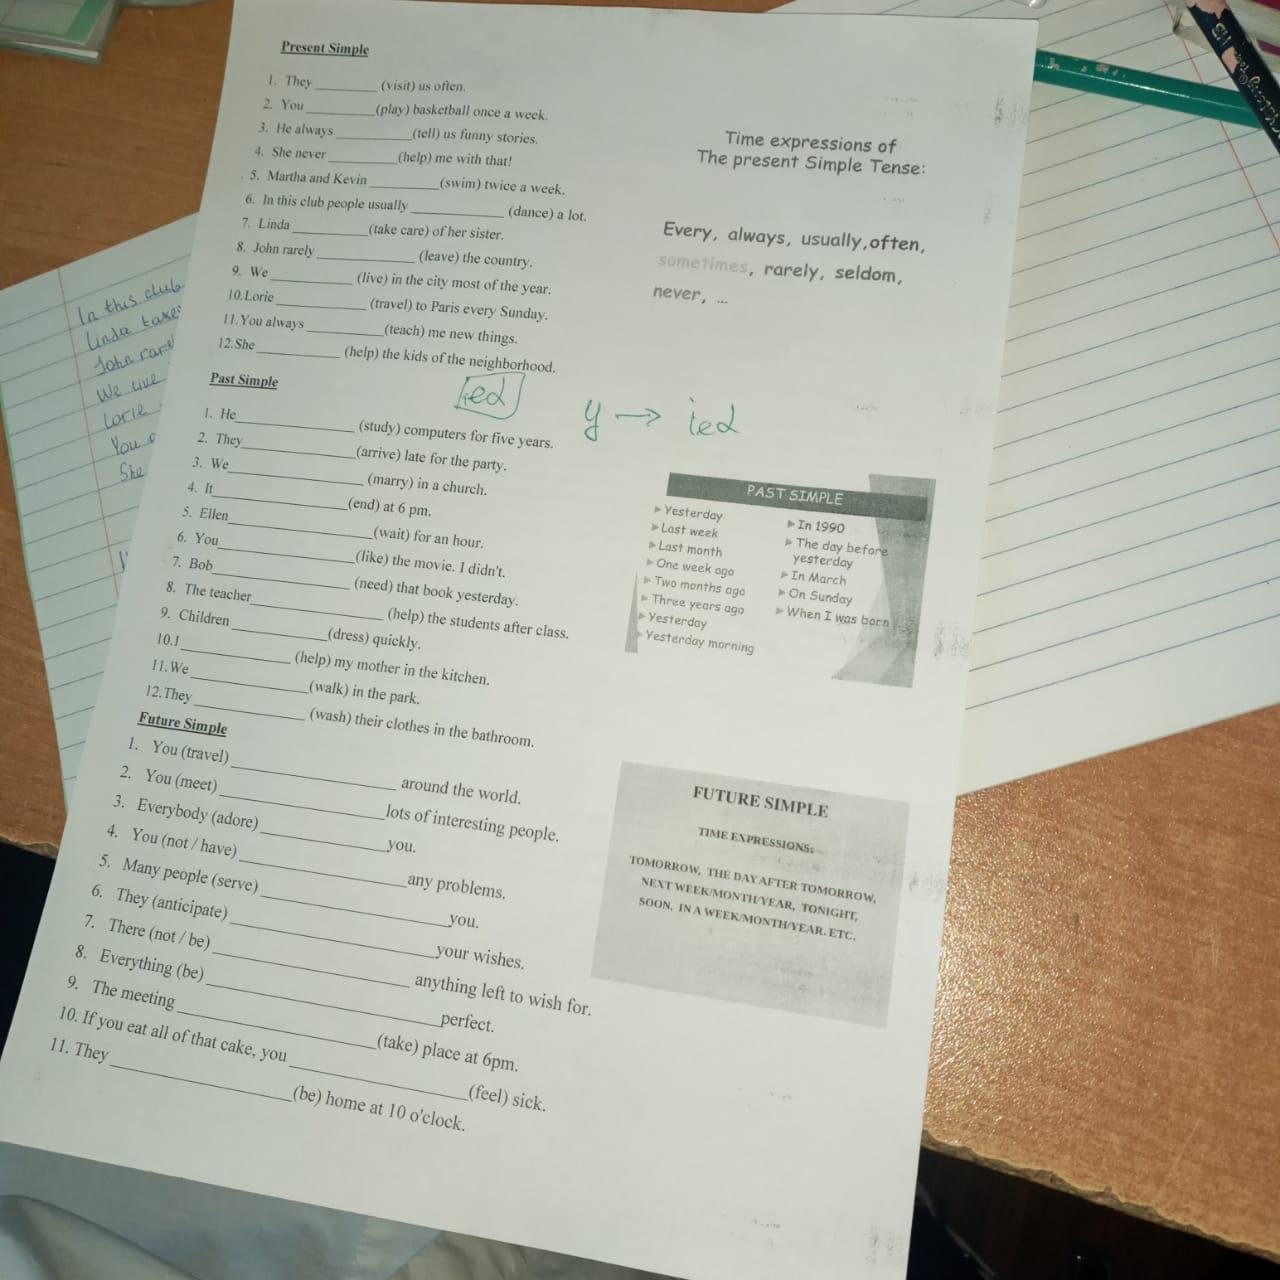 Present Simple
1. They ________ (visit) us often.
2. You _________(play) basketball once a week.
3. He always __________(tell) us funny stories.
4. She never _________(help) me with that!
5. Martha and Kevin _________(swim) twice a week.
6. In this club people usually ____________ (dance) a lot.
7. Linda __________(take care) of her sister.
8. John rarely _____________ (leave) the country.
9. We ___________ (live) in the city most of the year.
10.Lorie ____________ (travel) to Paris every Sunday.
11.You always __________(teach) me new things.
12.She ___________ (help) the kids of the neighborhood.
Time expressions of
The present Simple Tense:
Every, always, usually,often,
sometimes, rarely, seldom,
never, ...
Past Simple
ied
y → ied
1. He________________ (study) computers for five years.
2. They_______________(arrive) late for the party.
3. We__________________ (marry) in a church.
4. It__________________(end) at 6 pm.
5. Ellen___________________(wait) for an hour.
6. You__________________(like) the movie. I didn't.
7. Bob__________________ (need) that book yesterday.
8. The teacher_________________ (help) the students after class.
9. Children _____________(dress) quickly.
10.I_______________ (help) my mother in the kitchen.
11.We________________(walk) in the park.
12.They _______________ (wash) their clothes in the bathroom.
PAST SIMPLE
Yesterday
Last week
Last month
One week ago
Two months ago
Three years ago
Yesterday
Yesterday morning
In 1990
The day before
yesterday
In March
On Sunday
When I was born
Future Simple
1. You (travel) ____________________ around the world.
2. You (meet) ____________________lots of interesting people.
3. Everybody (adore) _______________you.
4. You (not / have) ____________________any problems.
5. Many people (serve) ______________________you.
6. They (anticipate) ________________________your wishes.
7. There (not / be) _______________________ anything left to wish for.
8. Everything (be) ___________________________perfect.
9. The meeting ______________________(take) place at 6pm.
10. If you eat all of that cake, you ____________________(feel) sick.
11. They ____________________(be) home at 10 o'clock.
FUTURE SIMPLE
TIME EXPRESSIONS:
TOMORROW, THE DAY AFTER TOMORROW,
NEXT WEEK/MONTH/YEAR, TONIGHT,
SOON, IN A WEEK/MONTH/YEAR. ETC.
In this club
Linda takes
John
We live
Lorie
You
She